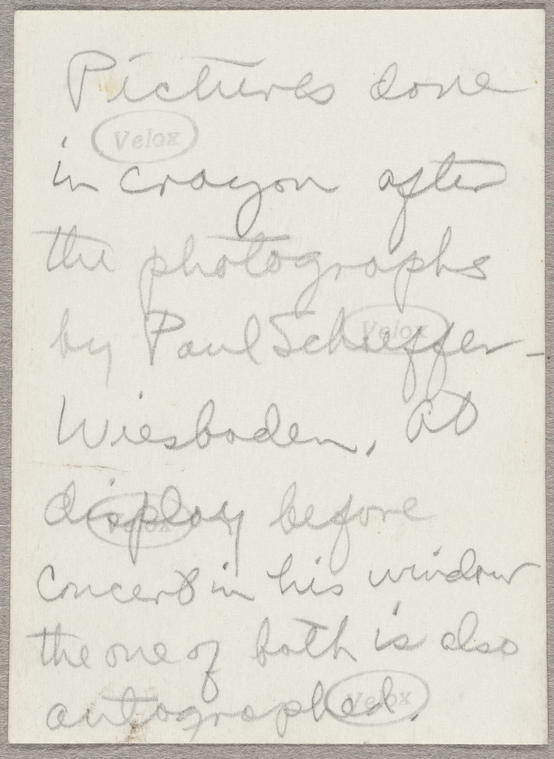 Pictures done
Velox
in crayon after
the photographs
by Paul Schäffer-
Velox
Wiesbaden, at
display before
Velox
concert in his window
the one of both is also
autographed.
Velox